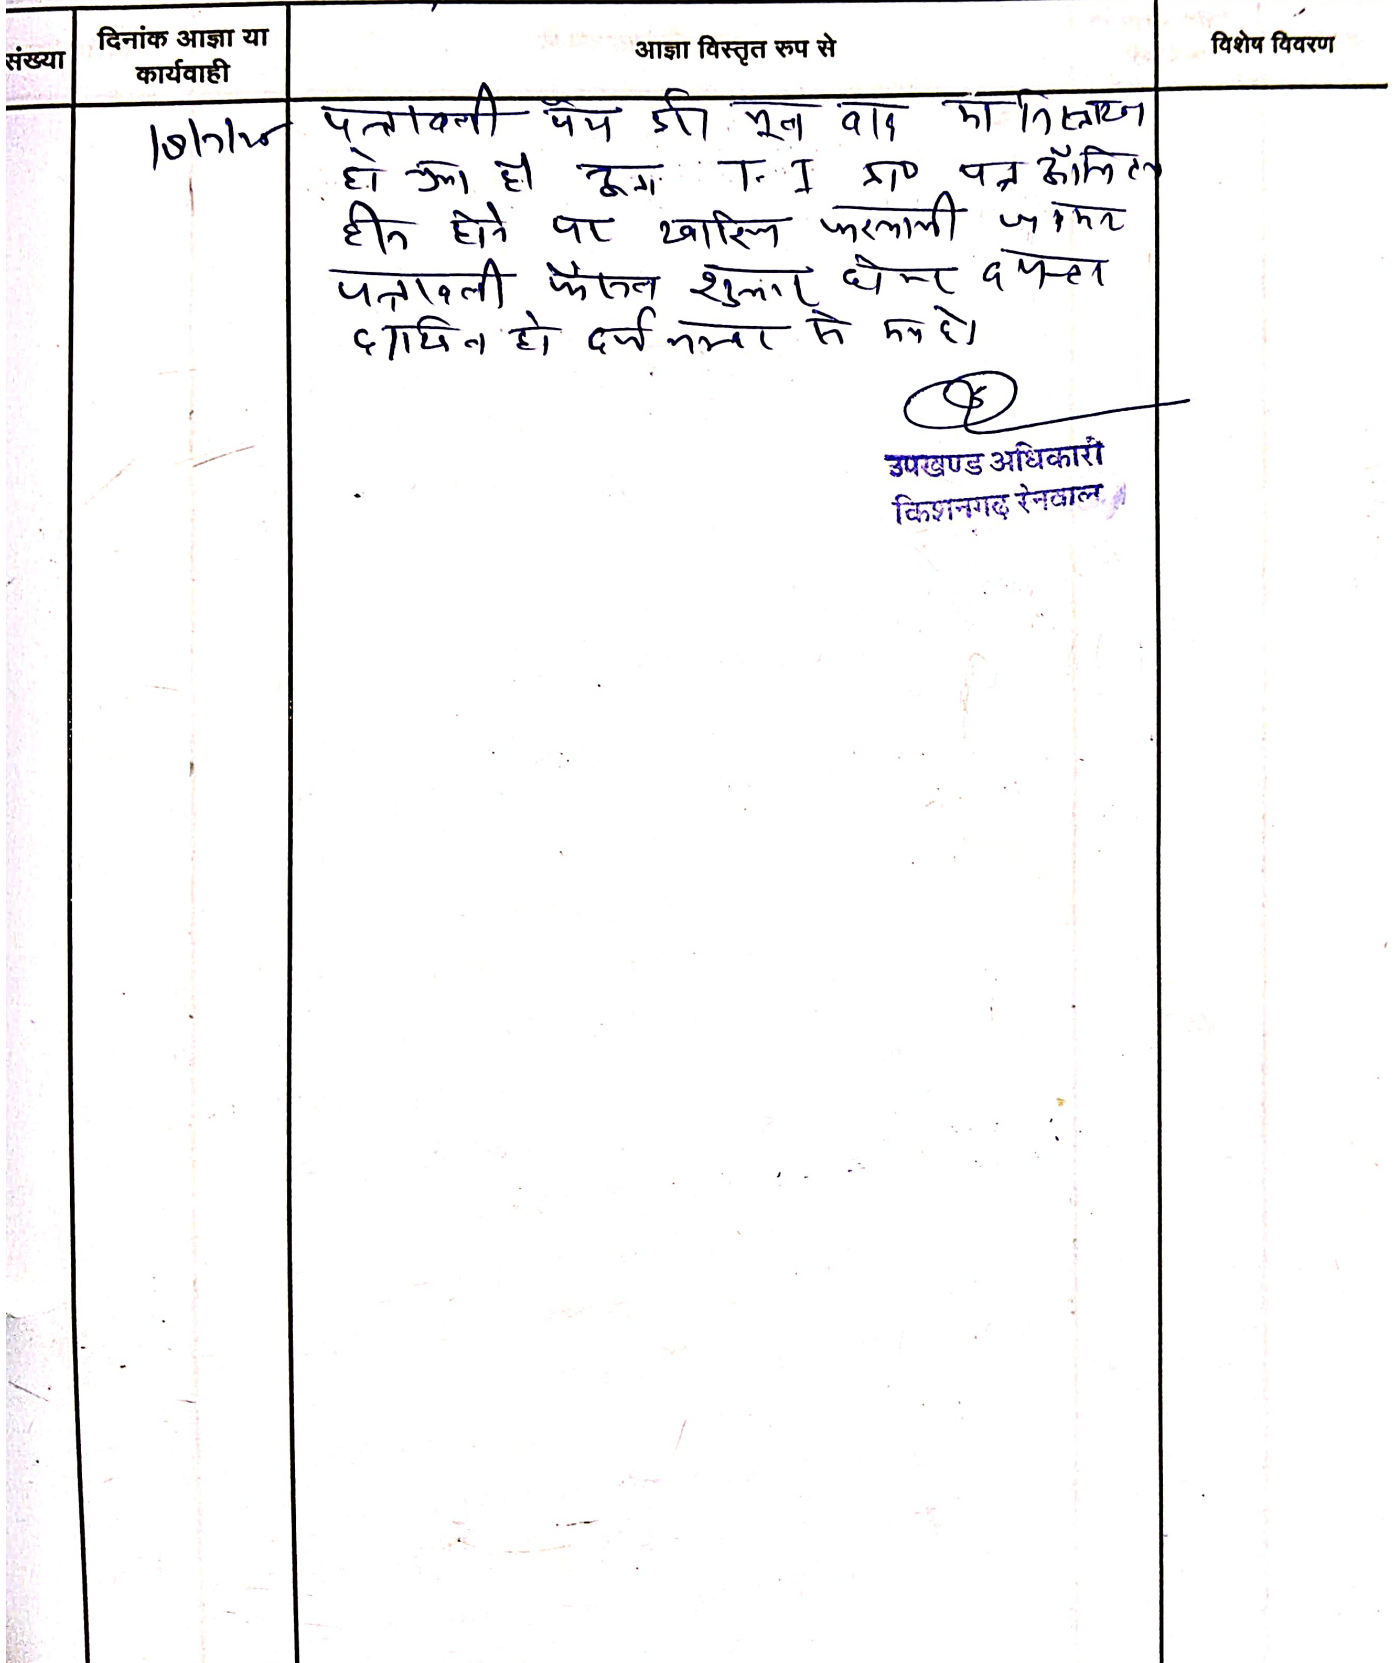 संख्या
दिनांक आज्ञा या
कार्यवाही
आज्ञा विस्तृत रुप से
विशेष विवरण
पत्रावली पेश हुई मूल वाद का निस्तारण
हो चुका है T. I प्रा० पत्र
हीन होने पर खारिज फरमाली जाकर
पत्रावली फैसल शुमार होकर दफ्तर
दाखिल हो दर्ज नम्बर से कम हो।
उपखण्ड अधिकारी
किशनगढ़ रेनवाल